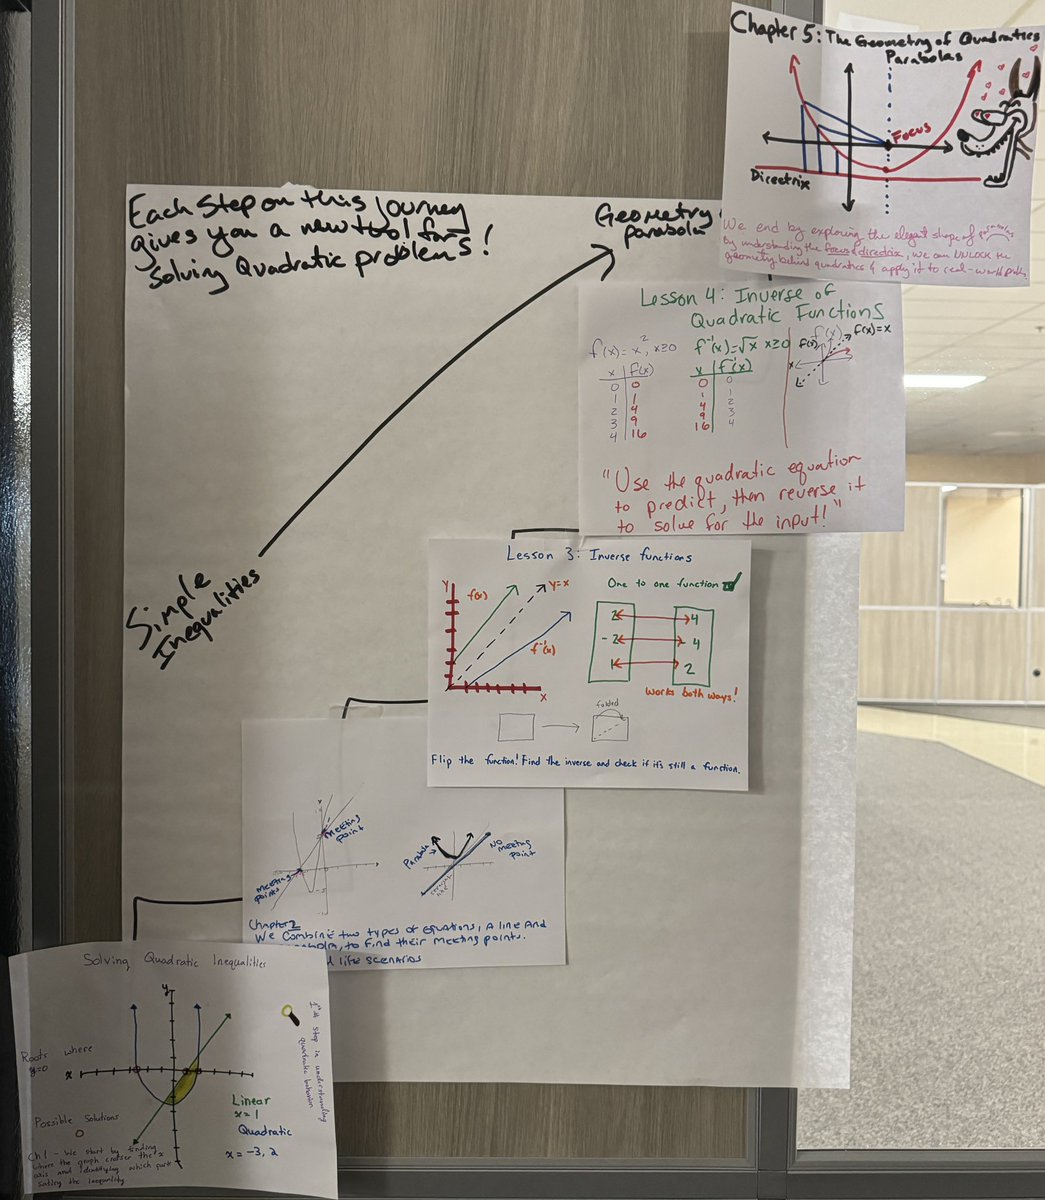 Each Step on this journey
gives you a new tool for
solving Quadratic problems!
Geometry
parabolas
Simple
Inequalities
Chapter 5: The Geometry of Quadratics
Parabolas
Focus
Directrix
We end by exploring the elegant shape of parabolas
By understanding the focus & directrix, we can UNLOCK the
geometry behind quadratics & apply it to real-world
Lesson 4: Inverse of
Quadratic Functions
f(x) = x², x≥0
x f(x)
0 0
1 1
2 4
3 9
4 16
f⁻¹(x)=√x x≥0
x f⁻¹(x)
0 0
1 1
4 2
9 3
16 4
f(x)
f(x)=x
x
"Use the quadratic equation
to predict, then reverse it
to solve for the input!"
Lesson 3: Inverse functions
y
f(x)
y=x
f⁻¹(x)
x
One to one function
2 4
-2 4
1 2
Works both ways!
folded
Flip the function! Find the inverse and check if it's still a function.
y
Meeting
point
Meeting
points
Parabola
NO
Meeting
point
Chapter 2
We Combine two types of equations, A line And
to find their Meeting points.
life scenarios
Solving Quadratic Inequalities
y
x
Roots where
y=0
Possible Solutions
Linear
x=1
Quadratic
x = -3, 2
1st step in understanding
quadratic behavior
Ch 1 - We start by finding
where the graph crosses the x
axis and identifying which part
the inequality